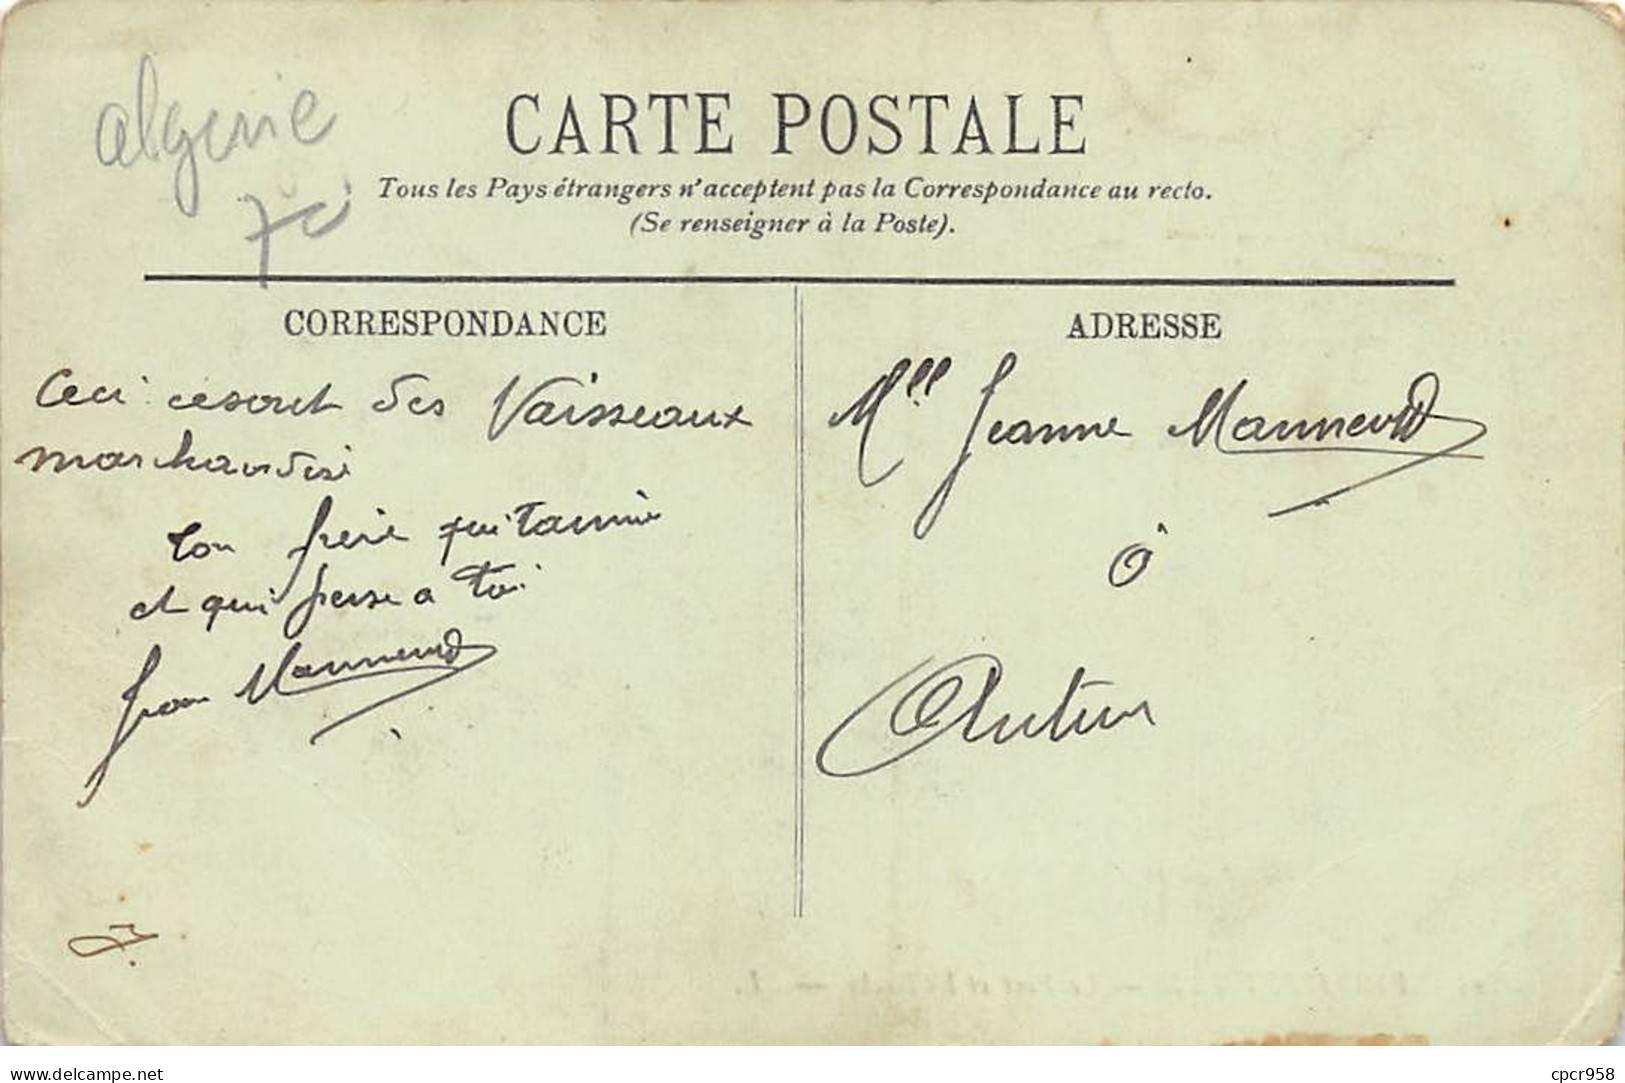 algerie
CARTE POSTALE
Tous les Pays étrangers n'acceptent pas la Correspondance au recto.
(Se renseigner à la Poste).
CORRESPONDANCE
Ceci ce sont des Vaisseaux
marchandise
ton frère qui t'aime
et qui pense a toi
ADRESSE
Mlle Jeanne
à
www.delcampe.net
cpcr958